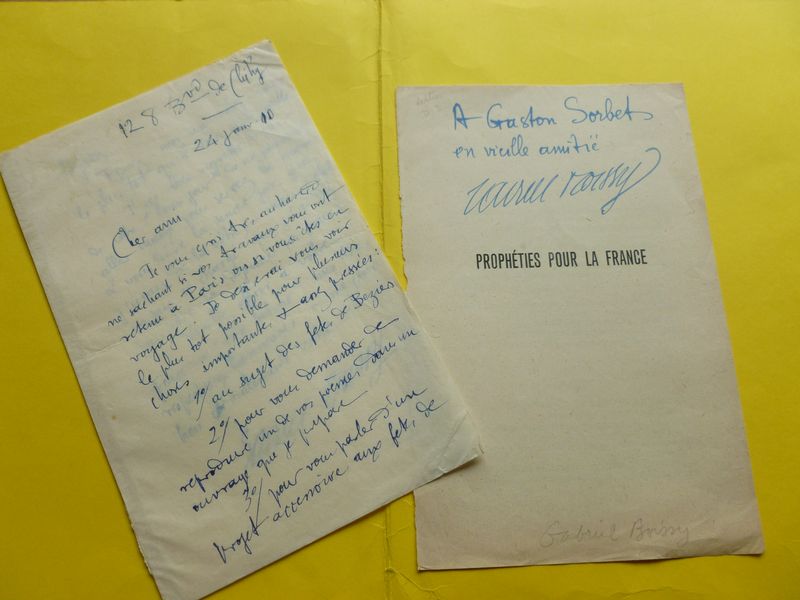 128 Bvd de Clichy
24 janv 10
Cher ami
Je vous écris
ne sachant si vos travaux vous ont
retenu à Paris ou si vous êtes en
voyage. Je désirerai vous voir
le plus tôt possible pour plusieurs
choses importantes & assez pressées:
1º/ au sujet des fêtes de Béziers
2º/ pour vous demander de
reproduire un de vos poèmes dans un
ouvrage que je prépare
3º/ pour vous parler d'un
projet accessoire aux fêtes de
A Gaston Sorbets
en vieille amitié
Gabriel Boissy
PROPHÉTIES POUR LA FRANCE
Gabriel Boissy